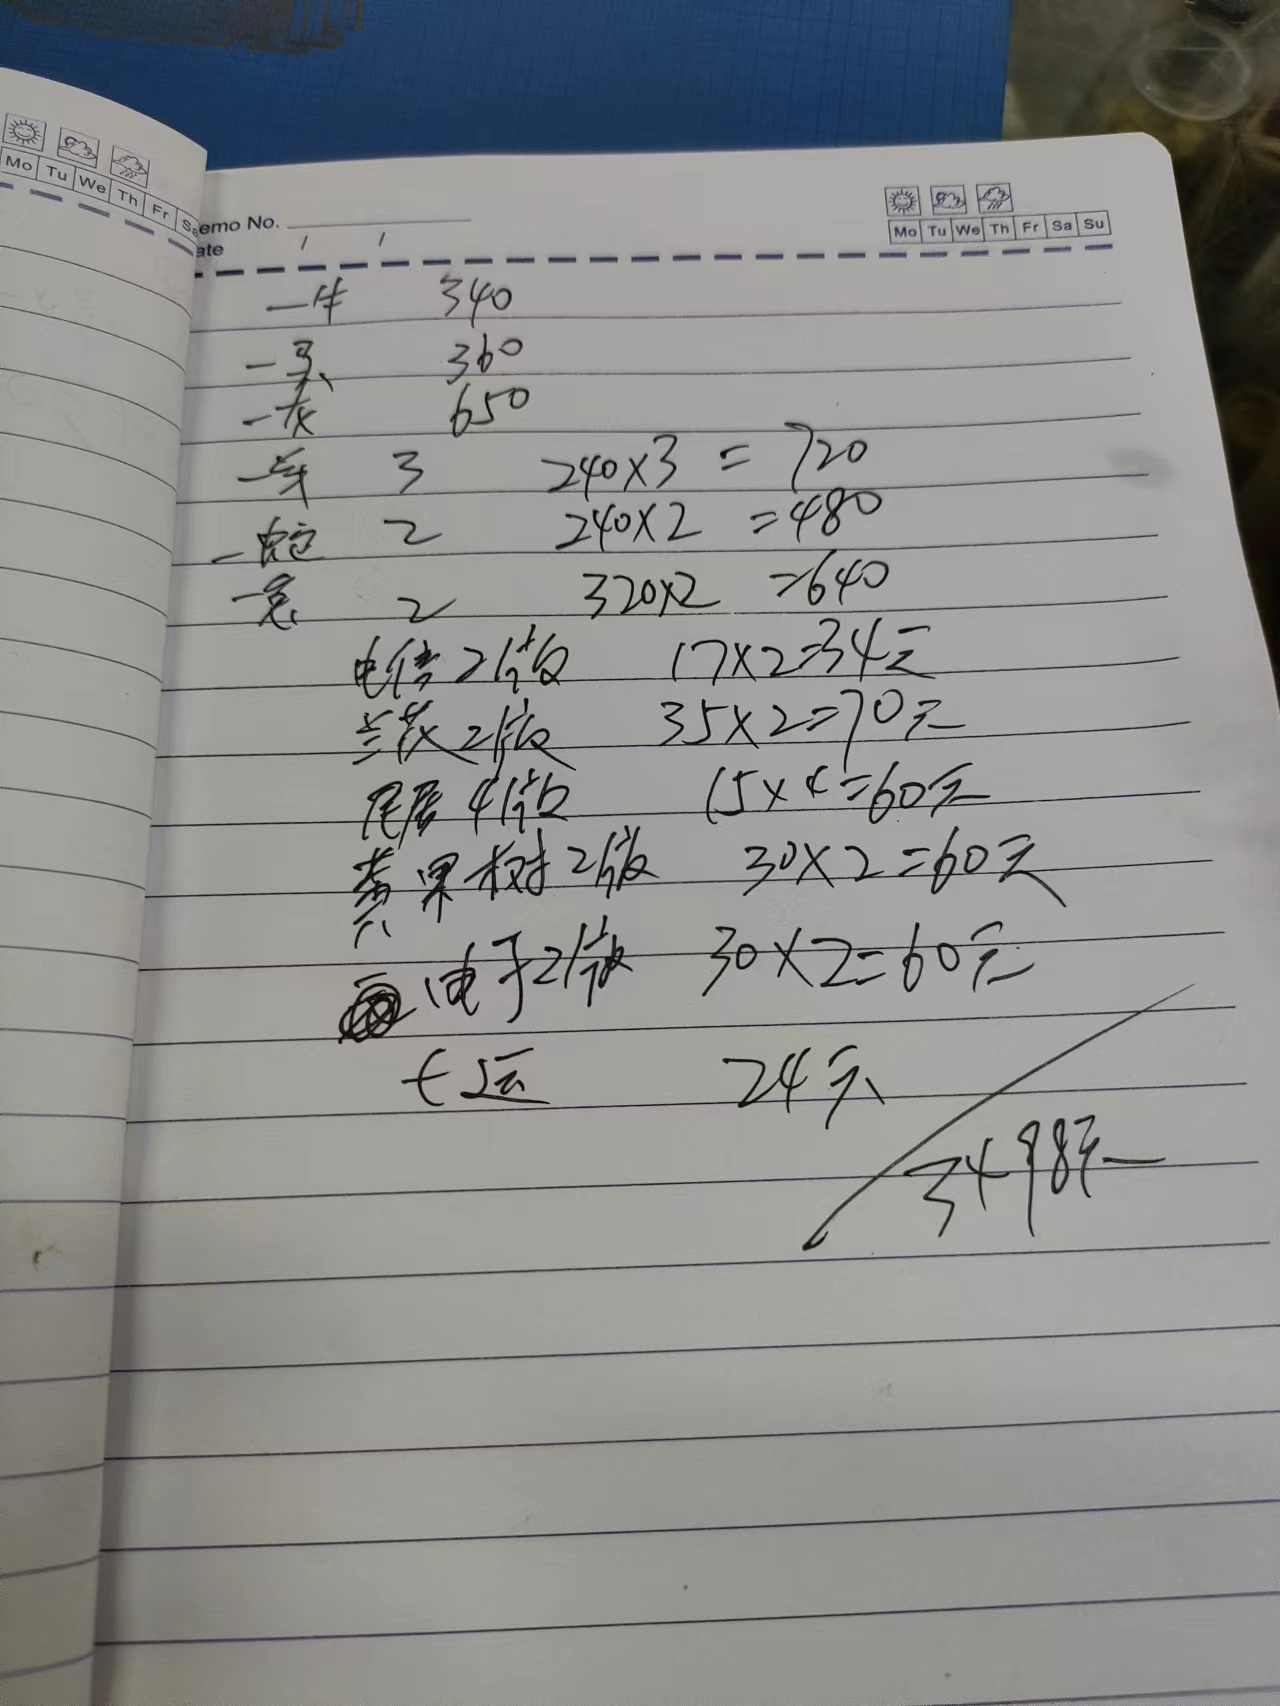 Mo Tu We Th Fr Sa
emo No.
ate / /
Mo Tu We Th Fr Sa Su
一牛 340
一马 360
一龙 650
一羊 3 240×3 = 720
一蛇 2 240×2 =480
一兔 2 320×2 =640
电信2个版 17×2=34元
兰花2个版 35×2=70元
4个版 15×4=60元
黄果树2个版 30×2=60元
电子2个版 30×2=60元
七运 24元
3498元